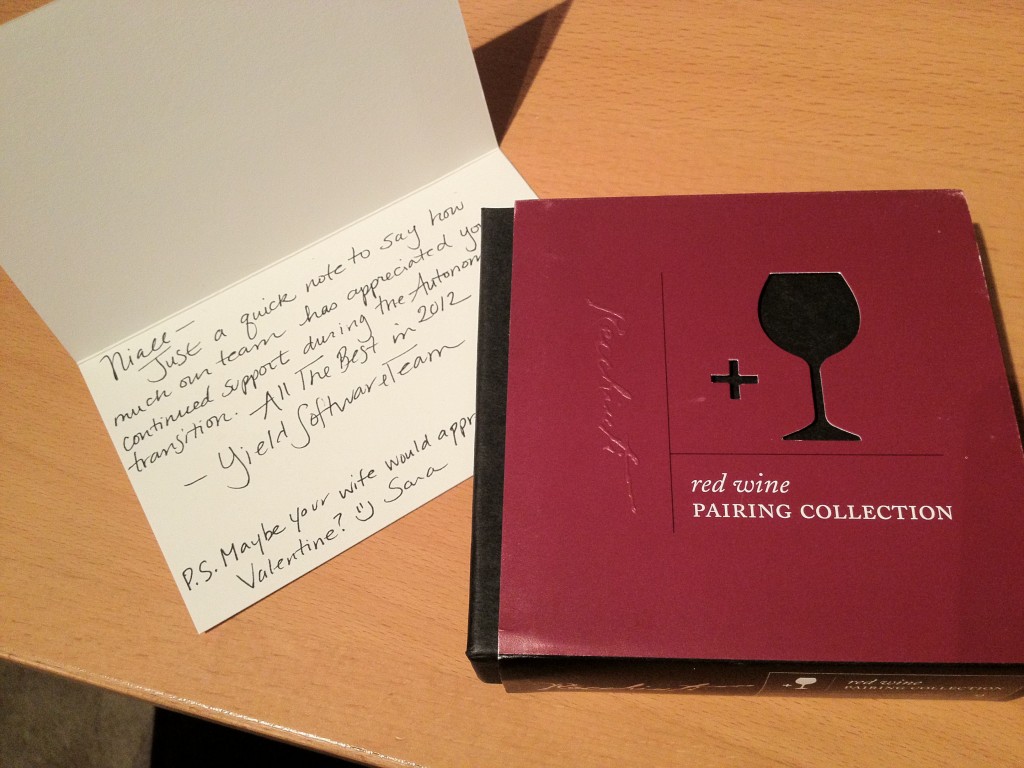 Niall —
Just a quick note to say how
much our team has appreciated
continued support during the
transition. All The Best in 2012
— Yield Software Team
P.S. Maybe your wife would
Valentine? Sara
Recchiuti
red wine
PAIRING COLLECTION
Recchiuti
red wine
PAIRING COLLECTION